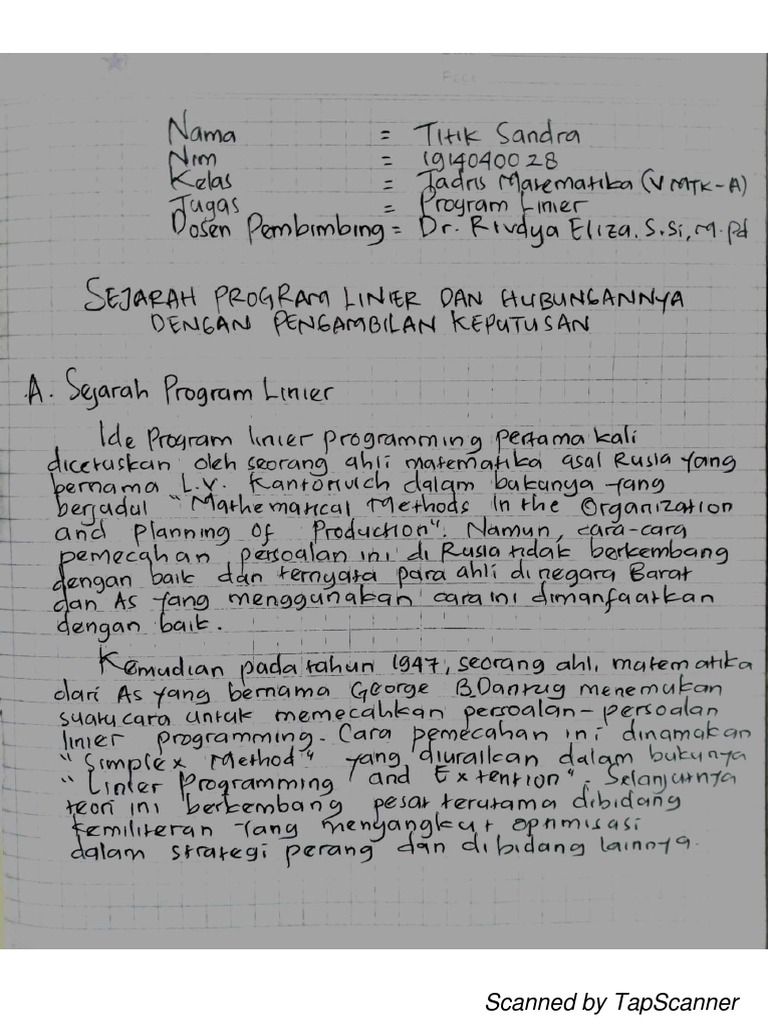 Nama = Titik Sandra
Nim = 1914040028
Kelas = Tadris Matematika (V MTK-A)
Tugas = Program Linier
Dosen Pembimbing = Dr. Rivdya Eliza. S.Si, M.Pd
SEJARAH PROGRAM LINIER DAN HUBUNGANNYA
DENGAN PENGAMBILAN KEPUTUSAN
A. Sejarah Program Linier
Ide Program linier programming pertama kali
dicetuskan oleh seorang ahli matematika asal Rusia yang
bernama L.V. Kantorivich dalam bukunya yang
berjudul "Mathematical Methods In the Organization
and planning of Production". Namun, cara-cara
pemecahan persoalan ini di Rusia tidak berkembang
dengan baik dan ternyata para ahli di negara Barat
dan As yang menggunakan cara ini dimanfaatkan
dengan baik.
Kemudian pada tahun 1947, seorang ahli matematika
dari As yang bernama George B.Dantzig menemukan
suatu cara untuk memecahkan persoalan-persoalan
linier programming. Cara pemecahan ini dinamakan
"Simplex Method" yang diuraikan dalam bukunya
"Linier Programming and Extention". Selanjutnya
teori ini berkembang pesat terutama dibidang
kemiliteran yang menyangkut optimisasi
dalam strategi perang dan di bidang lainnya.
Scanned by TapScanner